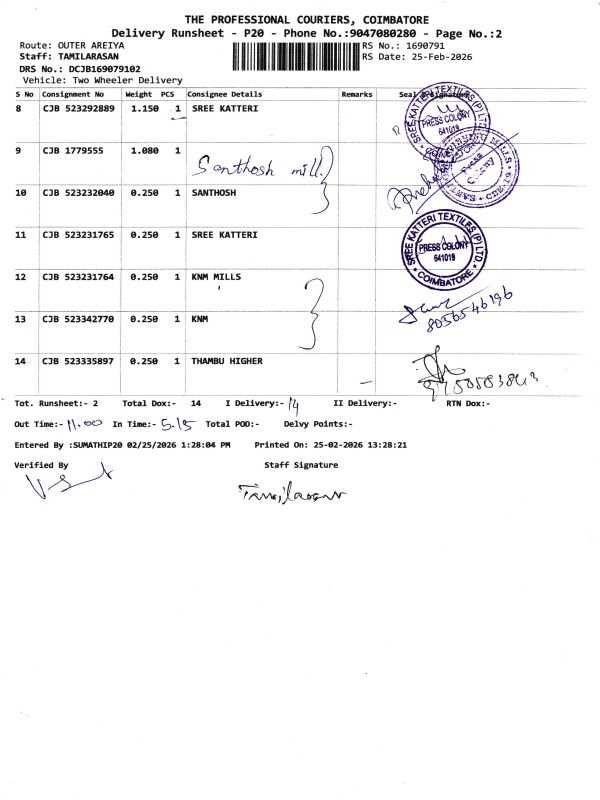 THE PROFESSIONAL COURIERS, COIMBATORE
Delivery Runsheet - P20 - Phone No.:9047080280 - Page No.:2
Route: OUTER AREIYA
RS No.: 1690791
Staff: TAMILARASAN
RS Date: 25-Feb-2026
DRS No.: DCJB169079102
Vehicle: Two Wheeler Delivery
S No Consignment No Weight PCS Consignee Details Remarks Seal
8 CJB 523292889 1.150 1 SREE KATTERI
SREE KATTERI TEXTILES (P) LTD.
PRESS COLONY
641019
9 CJB 1779555 1.080 1 Santhosh mill
Press Colony
10 CJB 523232040 0.250 1 SANTHOSH
11 CJB 523231765 0.250 1 SREE KATTERI
SREE KATTERI TEXTILES (P) LTD.
PRESS COLONY
641019
COIMBATORE
12 CJB 523231764 0.250 1 KNM MILLS
8056546196
13 CJB 523342770 0.250 1 KNM
14 CJB 523335897 0.250 1 THAMBU HIGHER
Tot. Runsheet:- 2 Total Dox:- 14 I Delivery:- 14 II Delivery:- RTN Dox:-
Out Time:- 11.00 In Time:- 5.15 Total POD:- Delvy Points:-
Entered By :SUMATHIP20 02/25/2026 1:28:04 PM Printed On: 25-02-2026 13:28:21
Verified By Staff Signature
Tamilarasan